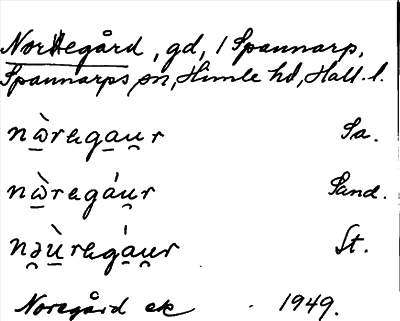 Norregård, gd, 1 Spannarp,
Spannarps sn, Himle hd, Hall. l.
nὼ̱rega̱u̯r Sa.
nὼ̱regá̱u̯r Sand.
nə̯ù̱regá̯u̯r St.
Noregård ek 1949.